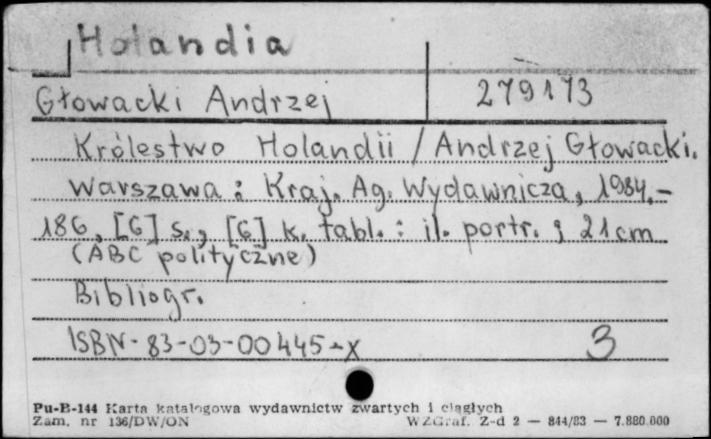 Holandia
Głowacki Andrzej 279173
Królestwo Holandii / Andrzej Głowacki.
Warszawa : Kraj. Ag. Wydawnicza, 1984.-
186, [6] s., [6] k. tabl. : il. portr. ; 21 cm
(ABC polityczne)
Bibliogr.
ISBN - 83-03-00445-X 3
Pu-B-144 Karta katalogowa wydawnictw zwartych i ciągłych
Zam. nr 136/DW/ON WZGraf. Z-d 2 — 844/83 — 7.880.000